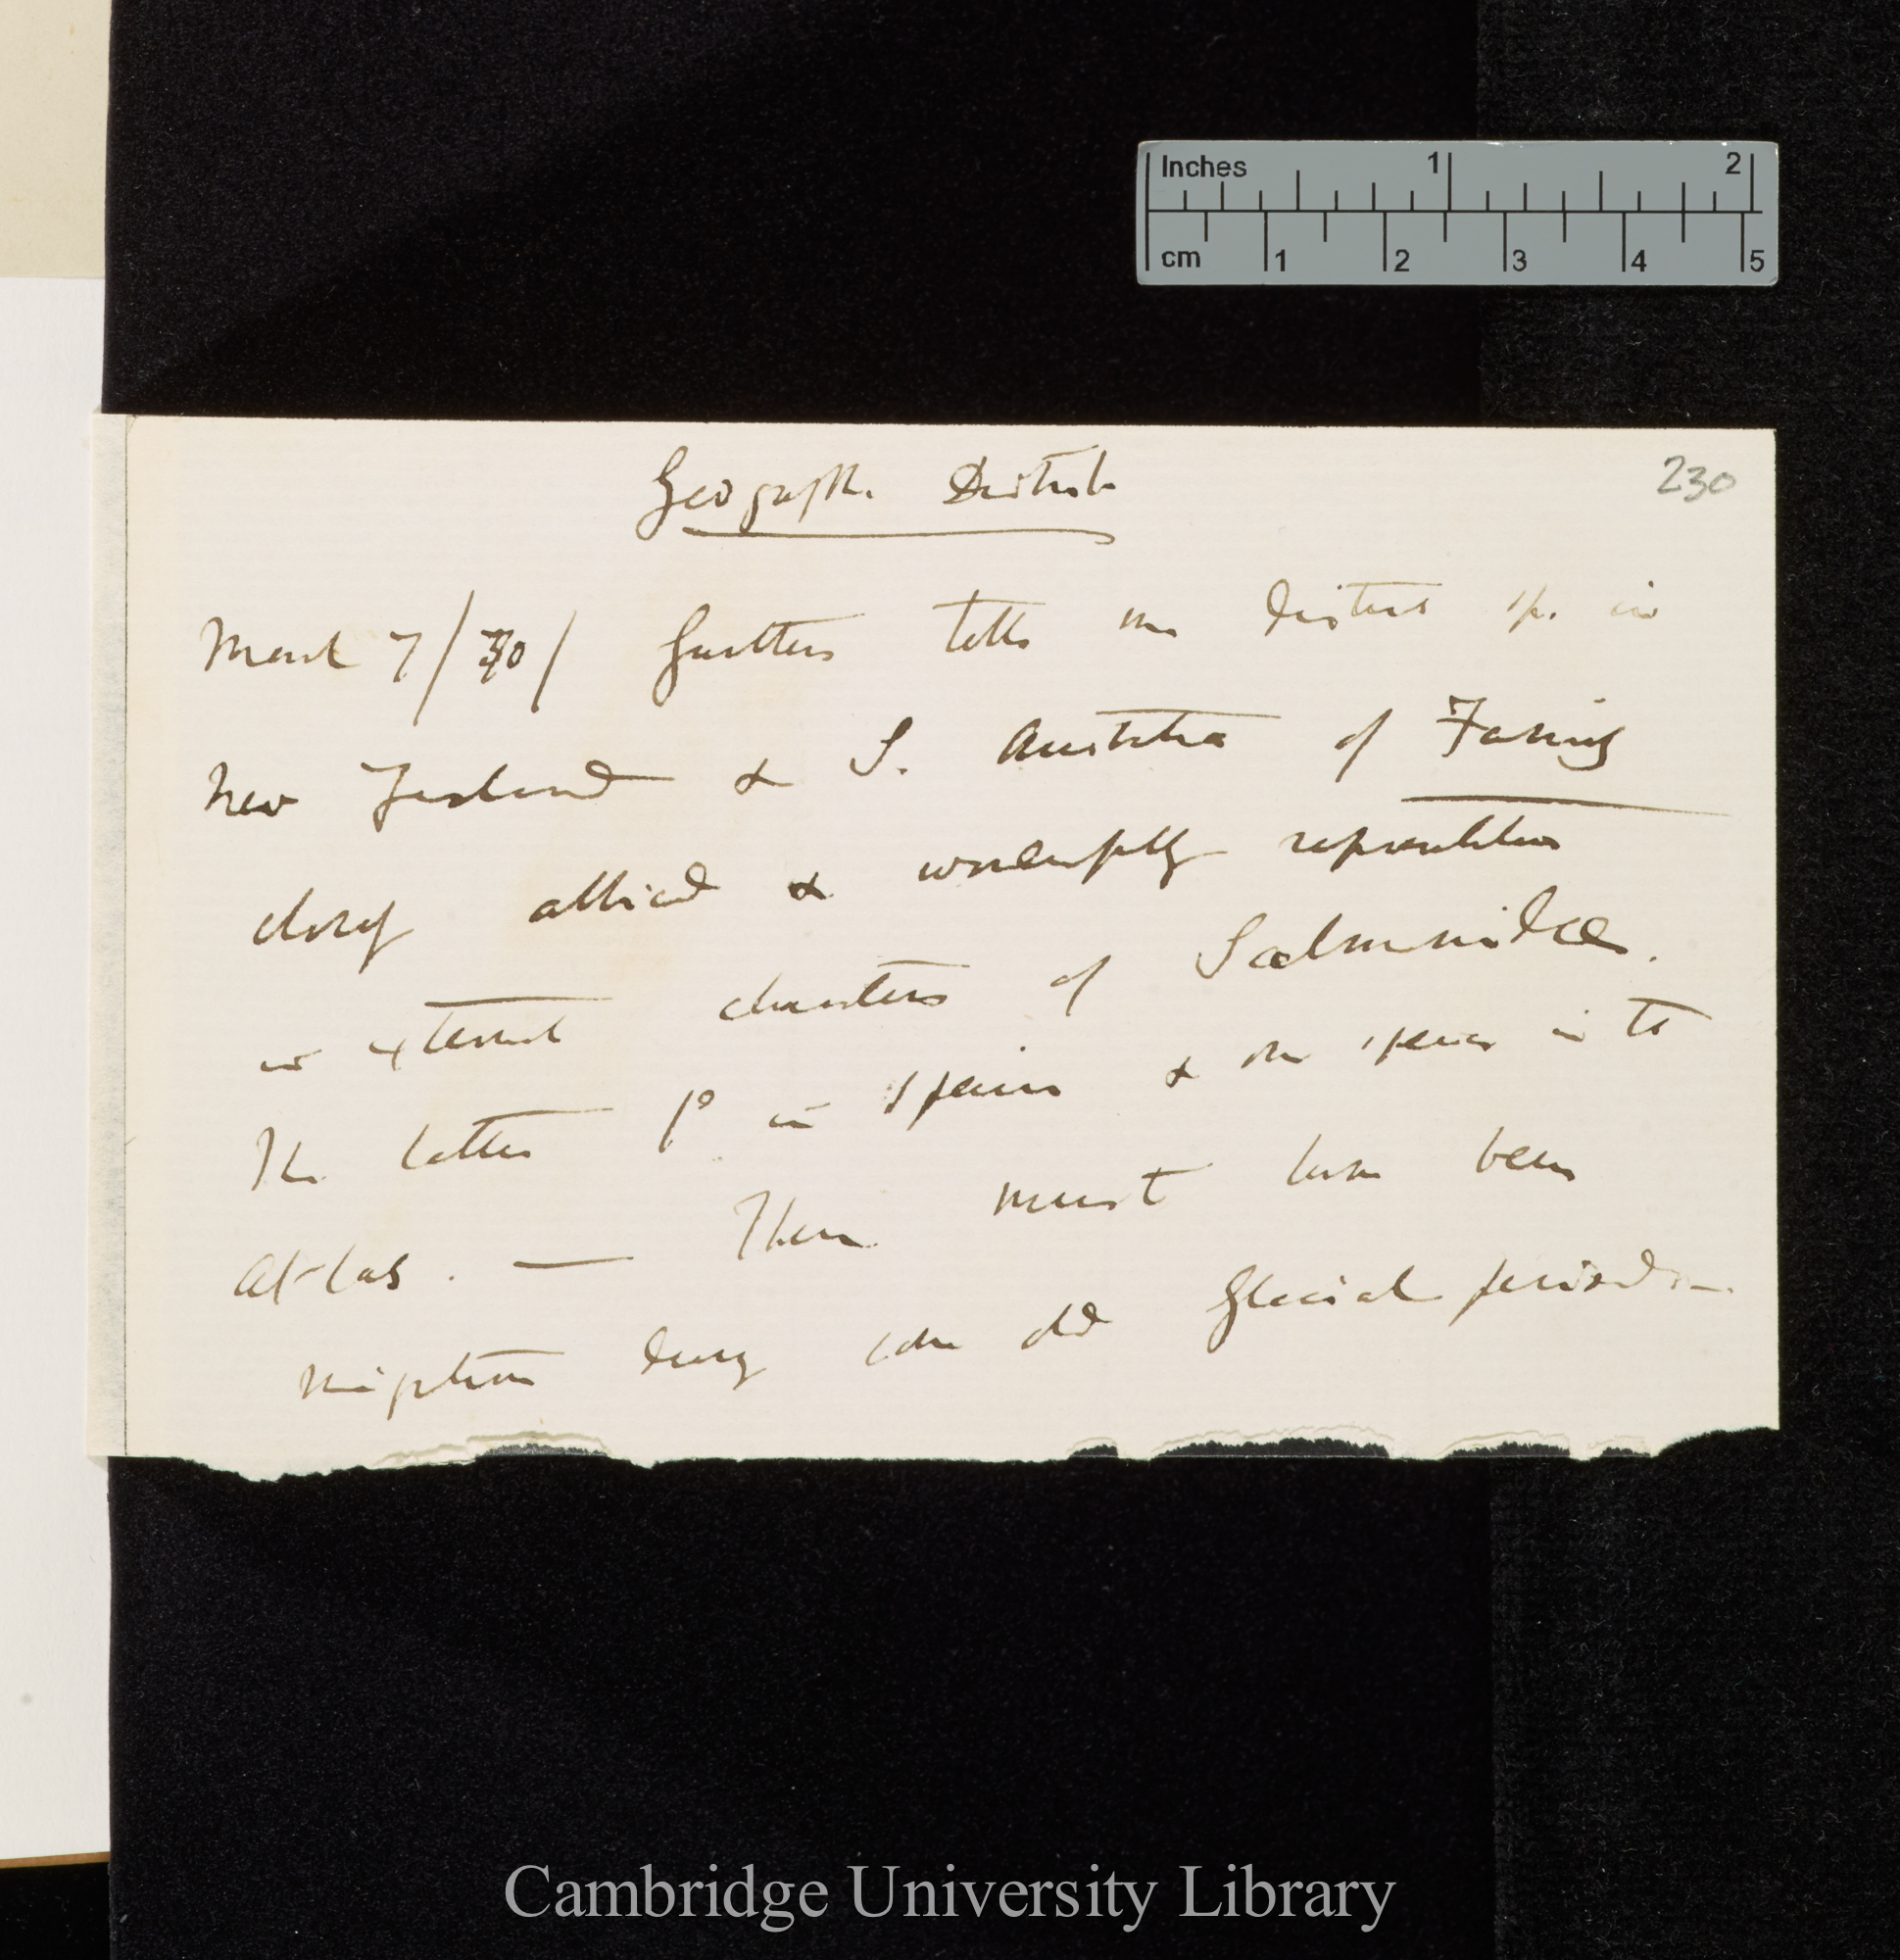 Inches 1 2
cm 1 2 3 4 5
230
Geograph. Distrib
March 7/70/ Gunther tells me distinct sp. in
New Zealand & S. Australia of Family
closely allied & wonderfully representative
in external characters of Salmonidæ.
The latter go in Spain & one species in to
Atlas. — There must have been
migration during some old Glacial period. —
Cambridge University Library